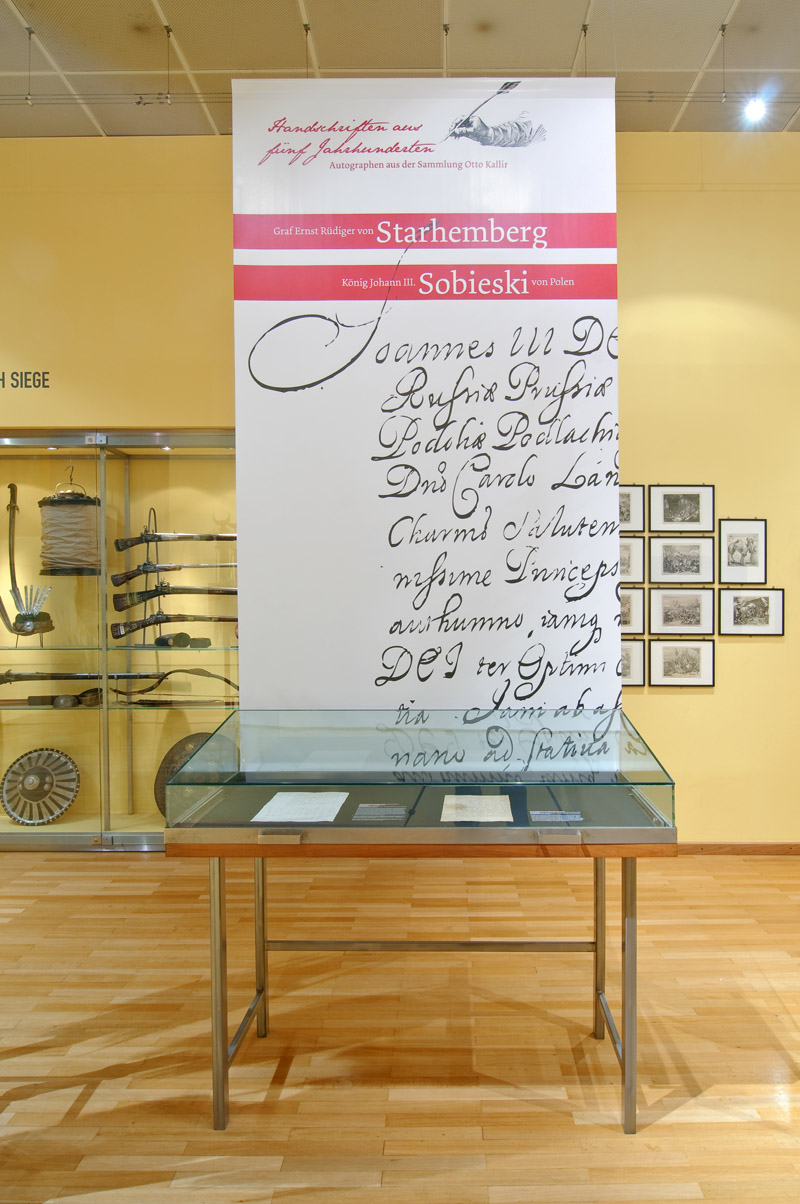 Handschriften aus
fünf Jahrhunderten
Autographen aus der Sammlung Otto Kallir
Graf Ernst Rüdiger von Starhemberg
König Johann III. Sobieski von Polen
H SIEGE
Joannes III DE
Russiæ Prussiæ
Podoliæ Podlachi
Dno Carolo
Charmo Salutem
nissime Princeps
authumno, iamq
DEI ter Optimi
tia Jam ab
nano ad statina